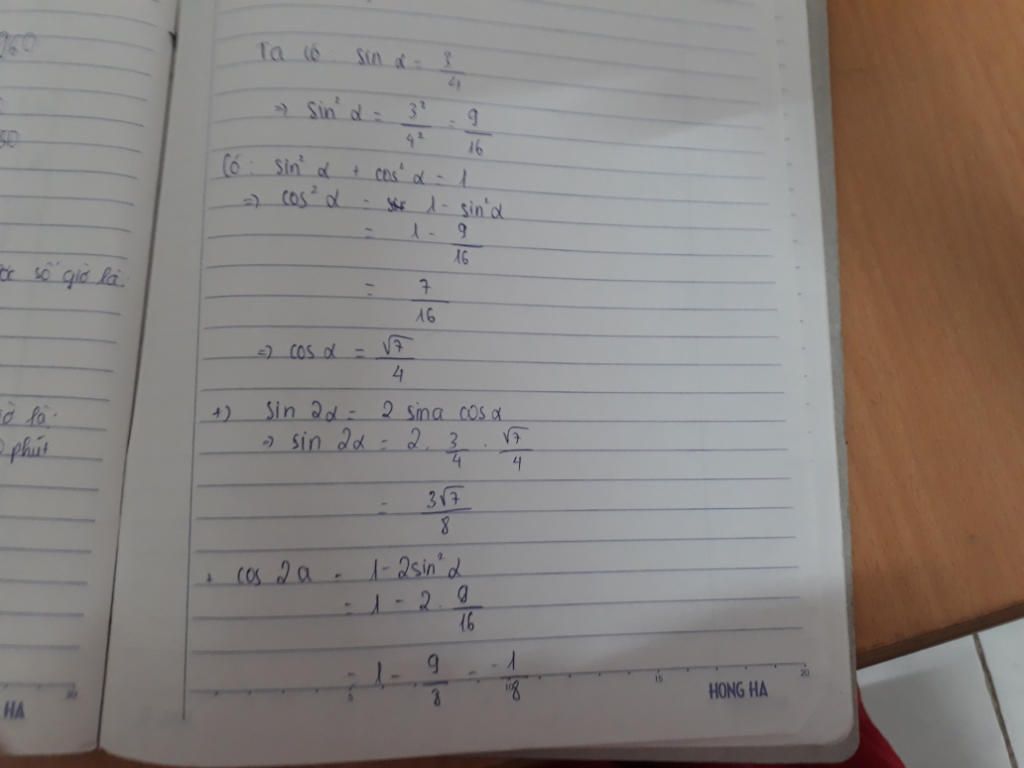 960
50
số giờ là:
là:
phút
Ta có: sin α = 3/4
⇒ sin² α = 3²/4² = 9/16
Có: sin² α + cos² α = 1
⇒ cos² α = 1 - sin² α
= 1 - 9/16
= 7/16
⇒ cos α = √7/4
+) sin 2α = 2 sina cosα
⇒ sin 2α = 2 . 3/4 . √7/4
= 3√7/8
+ cos 2a = 1 - 2sin² α
= 1 - 2 . 9/16
= 1 - 9/8 = -1/8
5 10 15 20
HONG HA
20
HA